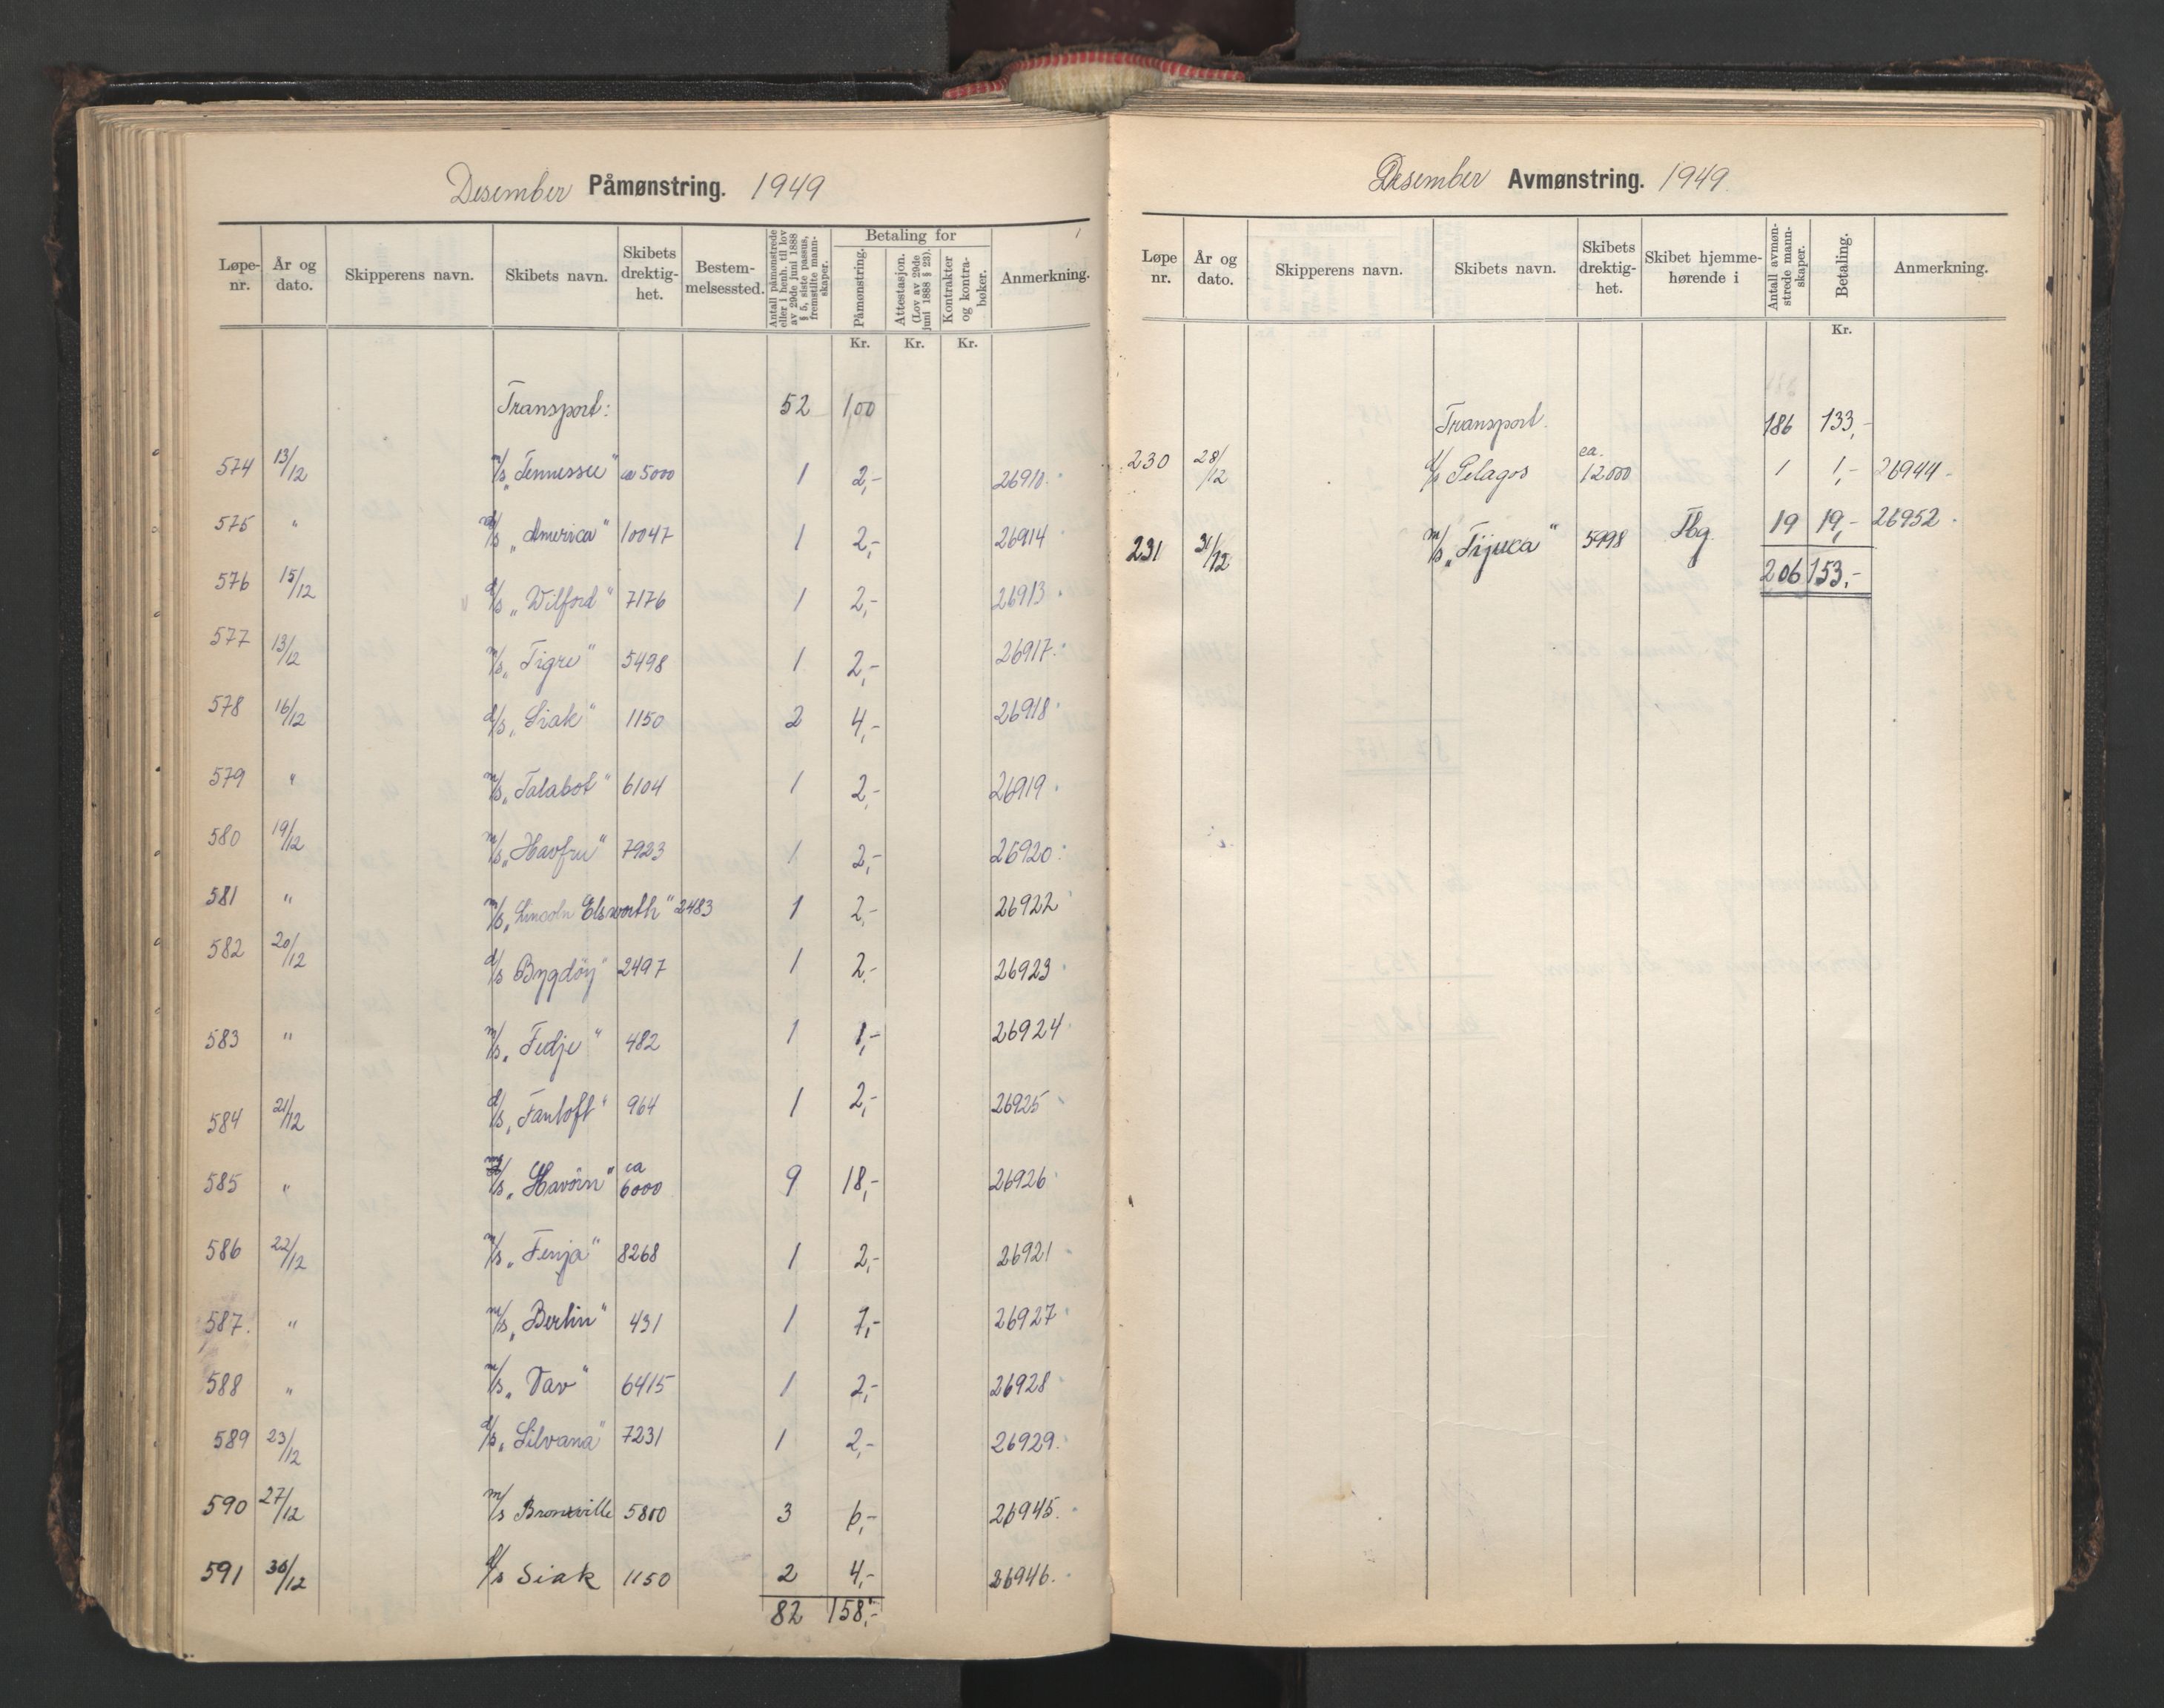 Desember Påmønstring. 1949
Løpe-nr. | År og dato. | Skipperens navn. | Skibets navn. | Skibets drektig-het. | Bestem-melsessted. | Antall påmønstrede eller i henh. til lov av 29de juni 1888 § 5, siste passus, fremstilte mann-skaper. | Betaling for | Påmønstring. | Attestasjon. (Lov av 29de juni 1888 § 23). | Kontrakter og kontra-bøker. | Anmerkning.
Kr. Kr. Kr.
Transport: 52 1,00
574 13/12 m/s „Tennessee" ca 5000 1 2,- 26910
575 " „America" 10047 1 2,- 26914
576 15/12 d/s „Wilford" 7176 1 2,- 26913
577 13/12 m/s „Tigre" 5498 1 2,- 26917
578 16/12 d/s „Siak" 1150 2 4,- 26918
579 " m/s „Talabot" 6104 1 2,- 26919
580 19/12 m/s „Havfru" 7923 1 2,- 26920
581 " m/s „Lincoln Elsworth" 2483 1 2,- 26922
582 20/12 d/s Bygdöy" 2497 1 2,- 26923
583 " m/s „Fedje" 482 1 1,- 26924
584 21/12 d/s „Fantoft" 964 1 2,- 26925
585 " m/s „Havörn" ca 6000 9 18,- 26926
586 22/12 m/s „Fenja" 8268 1 2,- 26921
587. " m/s „Berlin" 431 1 1,- 26927
588 " m/s „Vav" 6415 1 2,- 26928
589 23/12 d/s „Silvana" 7231 1 2,- 26929
590 27/12 m/s Bronxville 5800 3 6,- 26945
591 30/12 d/s Siak 1150 2 4,- 26946
82 158,-
Desember Avmønstring. 1949
Løpe nr. | År og dato. | Skipperens navn. | Skibets navn. | Skibets drektig-het. | Skibet hjemme-hørende i | Antall avmøn-strede mann-skaper. | Betaling. | Anmerkning.
Kr.
Transport. 186 133,-
230 28/12 d/s Pelagos ca. 12000 1 1,- 26944
231 31/12 m/s „Tijuca" 5998 Tbg. 19 19,- 26952
206 153,-